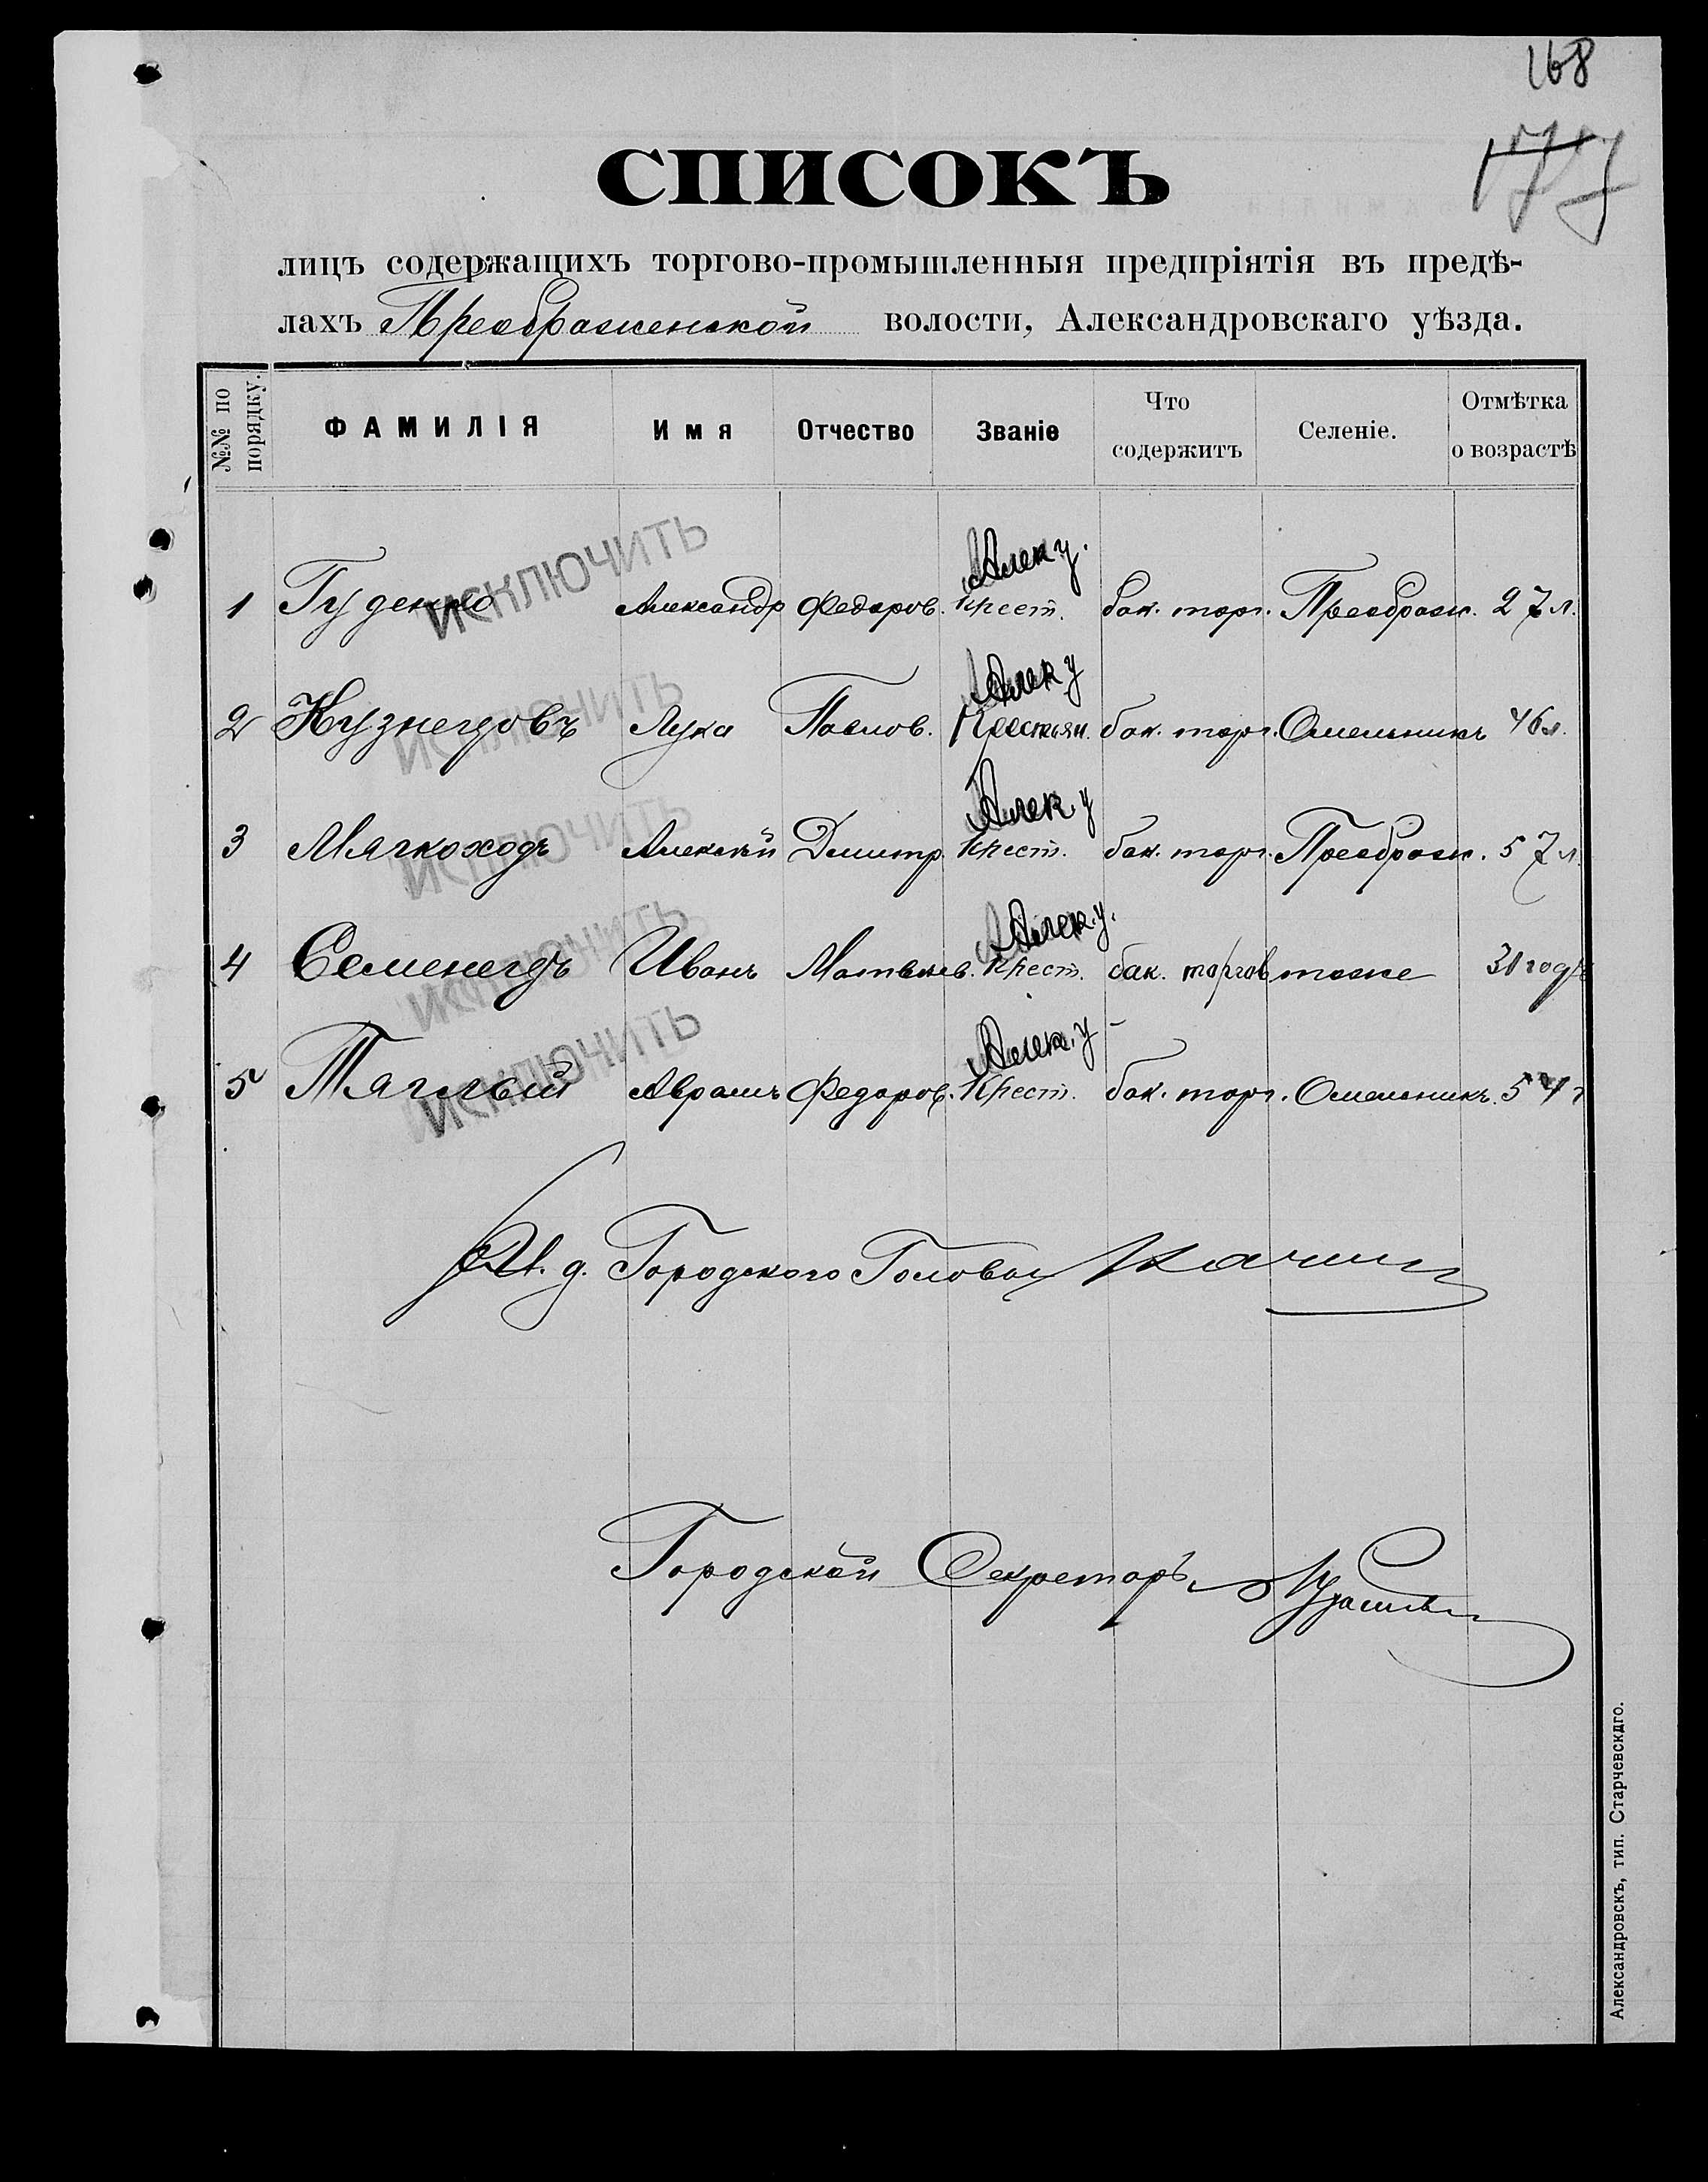 168
СПИСОКЪ
лицъ содержащихъ торгово-промышленныя предпріятія въ предѣ-
лахъ Преображенской волости, Александровскаго уѣзда.
№№ по порядку. ФАМИЛІЯ Имя Отчество Званіе Что содержитъ Селеніе. Отмѣтка о возрастѣ
Алек у.
1 Гуденко ИСКЛЮЧИТЬ Александр Федоров. Крест. бак. торг. Преображ. 27 л.
Алек у
2 Кузнецовъ ИСКЛЮЧИТЬ Лука Павлов. Крестьян. бак. торг. Омельникъ 46 л.
Алек. у
3 Мягкоходъ ИСКЛЮЧИТЬ Алексѣй Дмитр. Крест. бак. торг. Преображ. 57 л
Алек. у.
4 Семенецъ ИСКЛЮЧИТЬ Иванъ Матвѣев. Крест. бак. торгов тоже 31 годъ
Алек. у
5 Тяглый ИСКЛЮЧИТЬ Аврамъ Федоров. Крест. бак. торг. Омельникъ. 54 г
И. д. Городского Головы
Городской Секретарь
Александровскъ, тип. Старчевскаго.